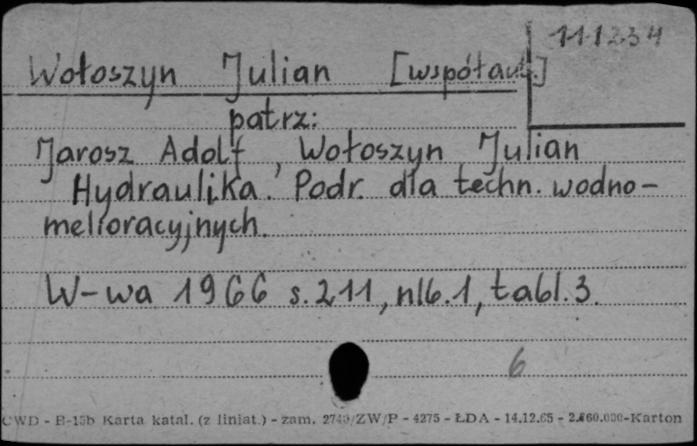 111234
Wołoszyn Julian [współaut.]
patrz:
Jarosz Adolf, Wołoszyn Julian
Hydraulika. Podr. dla techn. wodno-
melioracyjnych.
W-wa 1966 s. 211, nlb. 1, tabl. 3.
6
CWD - B-15b Karta katal. (z liniat.) - zam. 2749/ZW/P - 4275 - ŁDA - 14.12.65 - 2.860.000-Karton